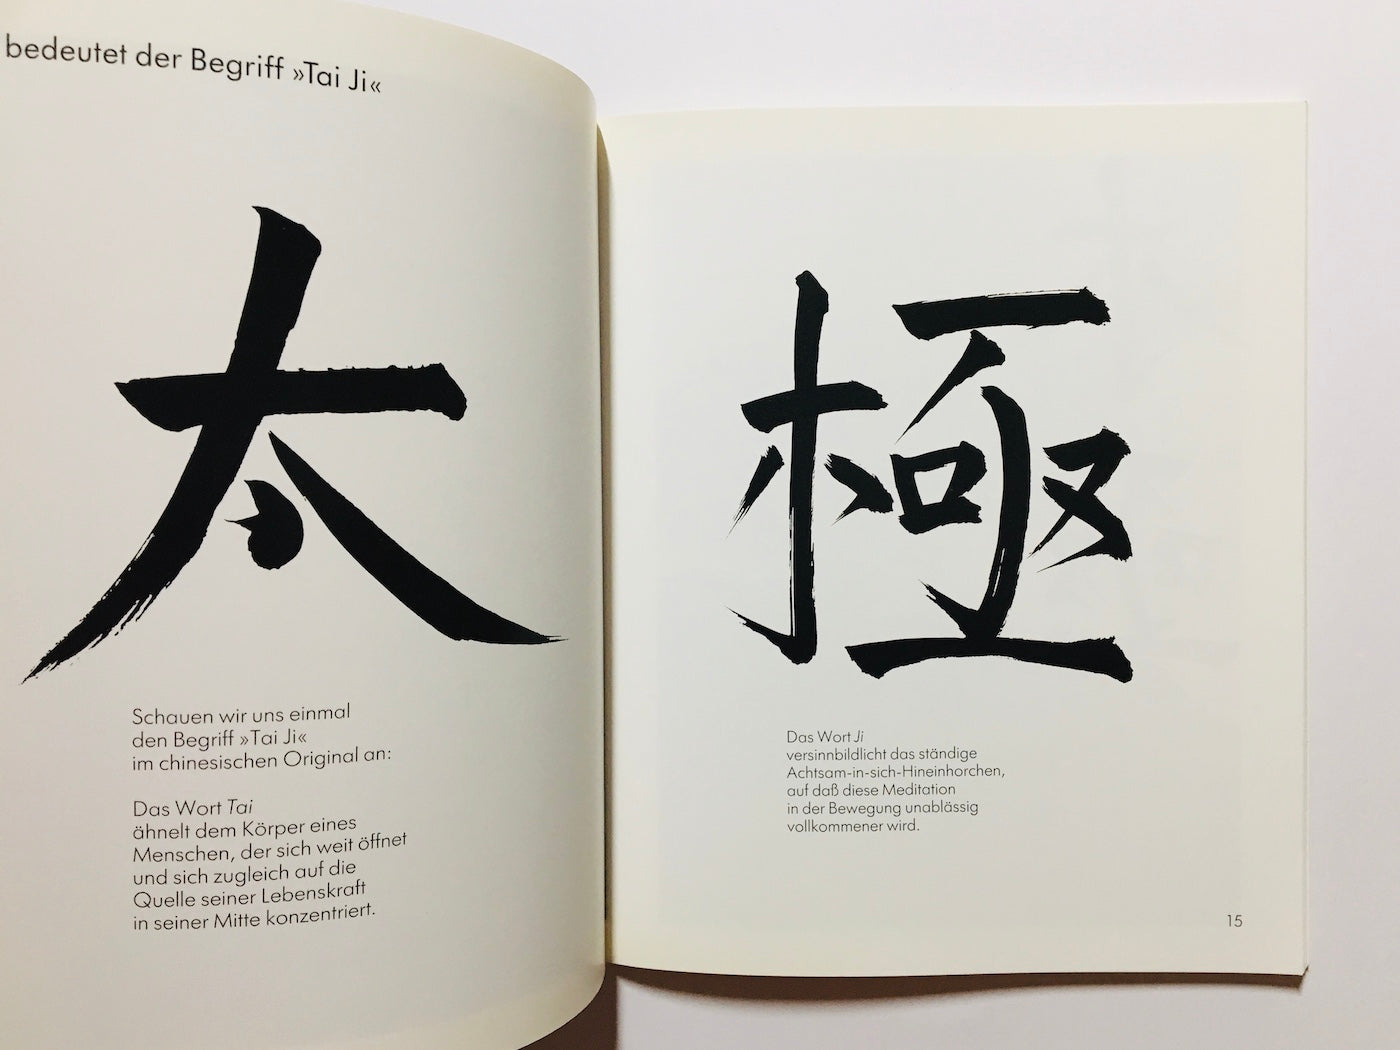 bedeutet der Begriff »Tai Ji«
太
Schauen wir uns einmal
den Begriff »Tai Ji«
im chinesischen Original an:
Das Wort Tai
ähnelt dem Körper eines
Menschen, der sich weit öffnet
und sich zugleich auf die
Quelle seiner Lebenskraft
in seiner Mitte konzentriert.
極
Das Wort Ji
versinnbildlicht das ständige
Achtsam-in-sich-Hineinhorchen,
auf daß diese Meditation
in der Bewegung unablässig
vollkommener wird.
15